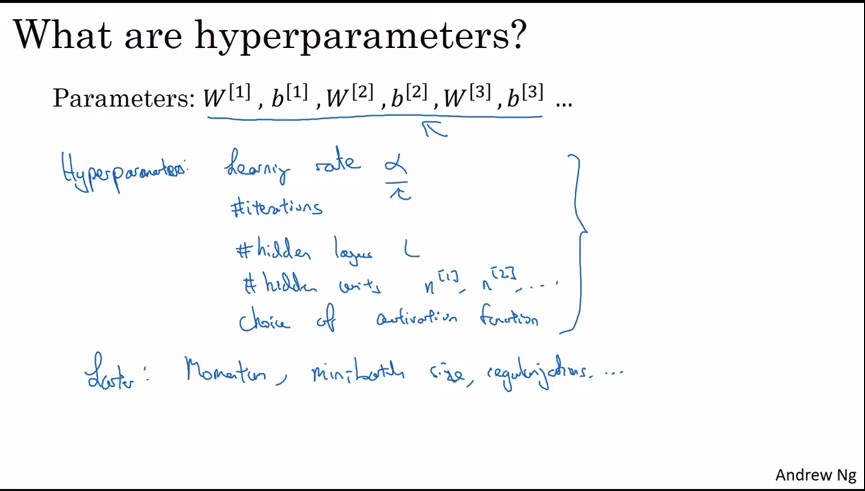 What are hyperparameters?
Parameters: W[1] , b[1] , W[2] , b[2] , W[3] , b[3] ...
Hyperparameters: Learning rate α
#iterations
#hidden layers L
# hidden units n[1], n[2], ...
choice of activation function
Later: Momentum, minibatch size, regularizations, ...
Andrew Ng